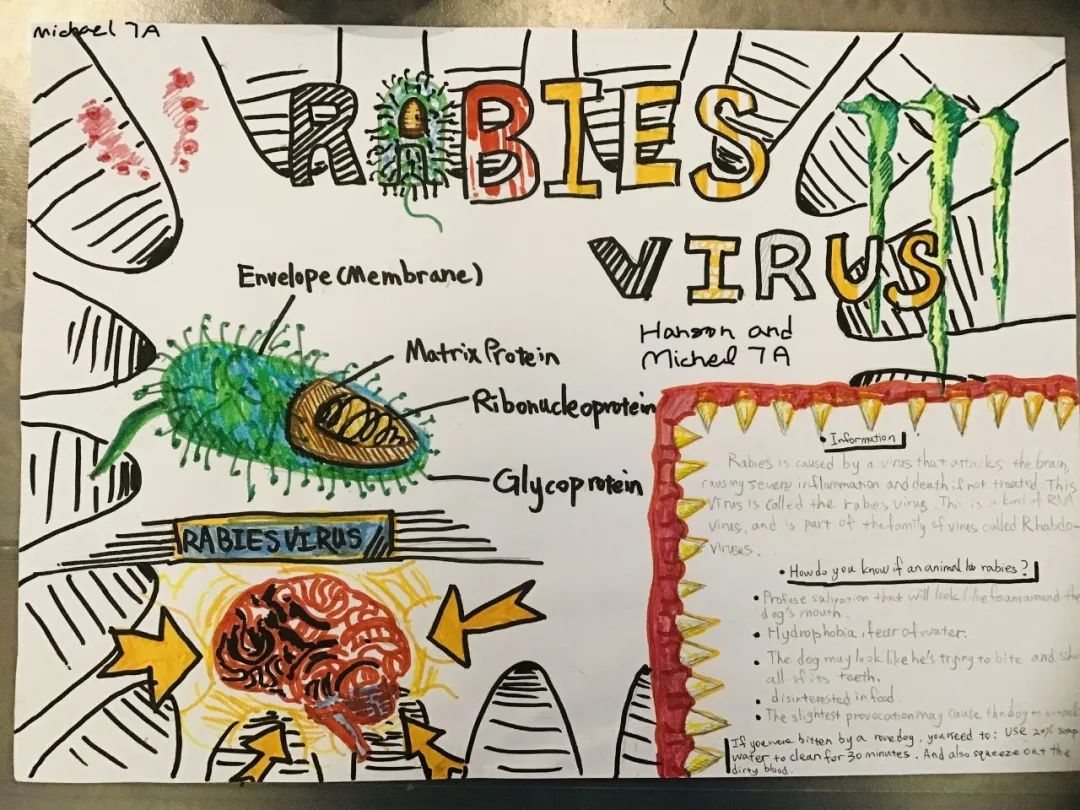 Michael 7A
RABIES
VIRUS
Hanson and
Micheal 7A
Envelope (Membrane)
Matrix Protein
Ribonucleoprotein
Glycoprotein
RABIES VIRUS
• Information
Rabies is caused by a virus that attacks the brain,
causing severe inflammation and death if not treated. This
Virus is called the rabies virus. This is a kind of RNA
virus, and is part of the family of virus called Rhabdo-
viruses.
• How do you know if an animal has rabies?
• Profuse salivation that will look like foam around the
dog's mouth.
• Hydrophobia, fear of water.
• The dog may look like he's trying to bite and
all of its teeth.
• disinterested in food
• The slightest provocation may cause the dog to
If you were bitten by a dog, you need to: USE 20% soap
water to clean for 30 minutes. And also squeeze out the
dirty blood.